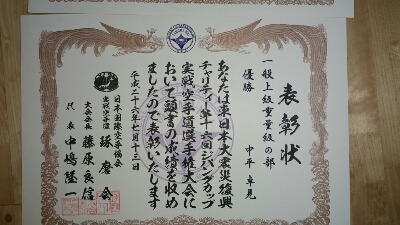 表彰状
一般上級重量級の部
優勝 中平卓見
あなたは東日本大震災復興
チャリティー第十六回ジパングカップ
実戦空手道選手権大会に
おいて頭書の成績を収め
ましたので表彰いたします
平成二十六年七月十三日
日本国際空手協会
実戦空手道 琢磨会
大会会長 藤原良信
代表 中嶋隆一